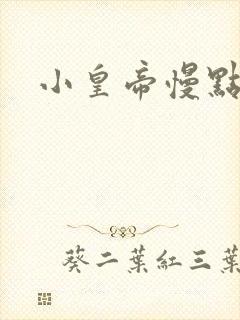 小皇帝慢點
葵二葉紅三葉